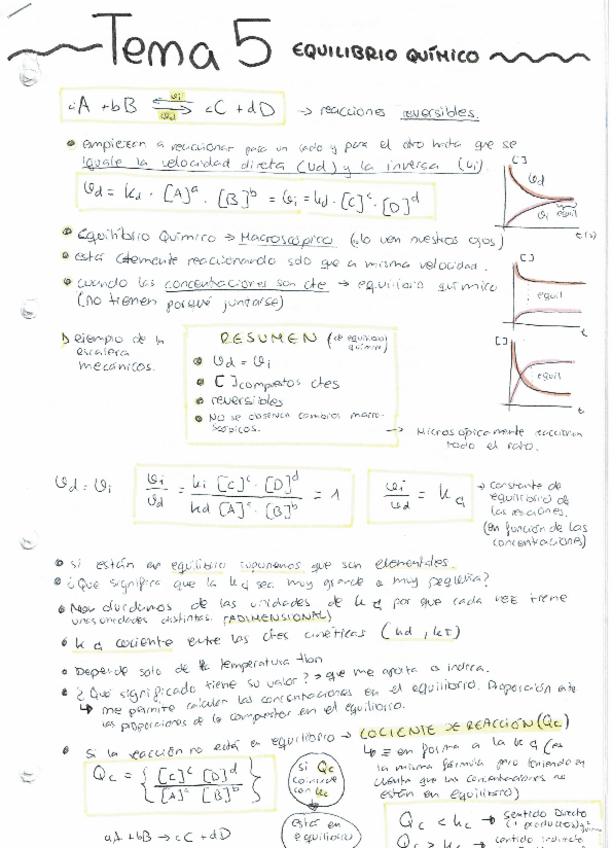 Tema 5 EQUILIBRIO QUÍMICO
aA + bB ⇌ cC + dD → reacciones reversibles.
vi
vd
• empiezan a reaccionar para un lado y para el otro hasta que se
iguale la velocidad directa (vd) y la inversa (vi)
vd = kd · [A]^a · [B]^b = vi = kd · [C]^c · [D]^d
[ ]
vd
vi equil
t(s)
• Equilibrio Químico → Macroscópico (lo ven nuestros ojos)
• está ctemente reaccionando solo que a misma velocidad.
• cuando las concentraciones son cte → equilibrio químico
(no tienen porqué juntarse)
[ ]
equil
t
ejemplo de la
escalera
mecánicos.
RESUMEN (de equilibrio
químico)
• vd = vi
• [ ] compuestos ctes
• reversibles
• No se observan cambios macro-
scópicos.
[ ]
equil
t
→ Microscópicamente reaccionan
todo el rato.
vd = vi
vi/vd = ki [C]^c · [D]^d / kd [A]^a · [B]^b = 1
vi/vd = kc
→ constante de
equilibrio de
las reacciones.
(en función de las
concentraciones)
• si están en equilibrio suponemos que son elementales.
• ¿Qué significa que la kc sea muy grande o muy pequeña?
• Nos olvidamos de las unidades de kc por que cada vez tiene
unas unidades distintas. (ADIMENSIONAL)
• kc cociente entre las ctes cinéticas (kd, ki)
• Depende solo de la temperatura
• ¿Qué significado tiene su valor? → que me aporta o indica.
↳ me permite calcular las concentraciones en el equilibrio. Proporción
las proporciones de los compuestos en el equilibrio.
• Si la reacción no está en equilibrio → COCIENTE DE REACCIÓN (Qc)
Qc = { [C]^c [D]^d / [A]^a [B]^b }
si Qc
coincide
con kc
está en
equilibrio
↳ = en forma a la kc (es
la misma fórmula pero teniendo en
cuenta que las concentraciones no
están en equilibrio)
aA + bB → cC + dD
Qc < kc → sentido directo
Qc > kc → sentido indirecto